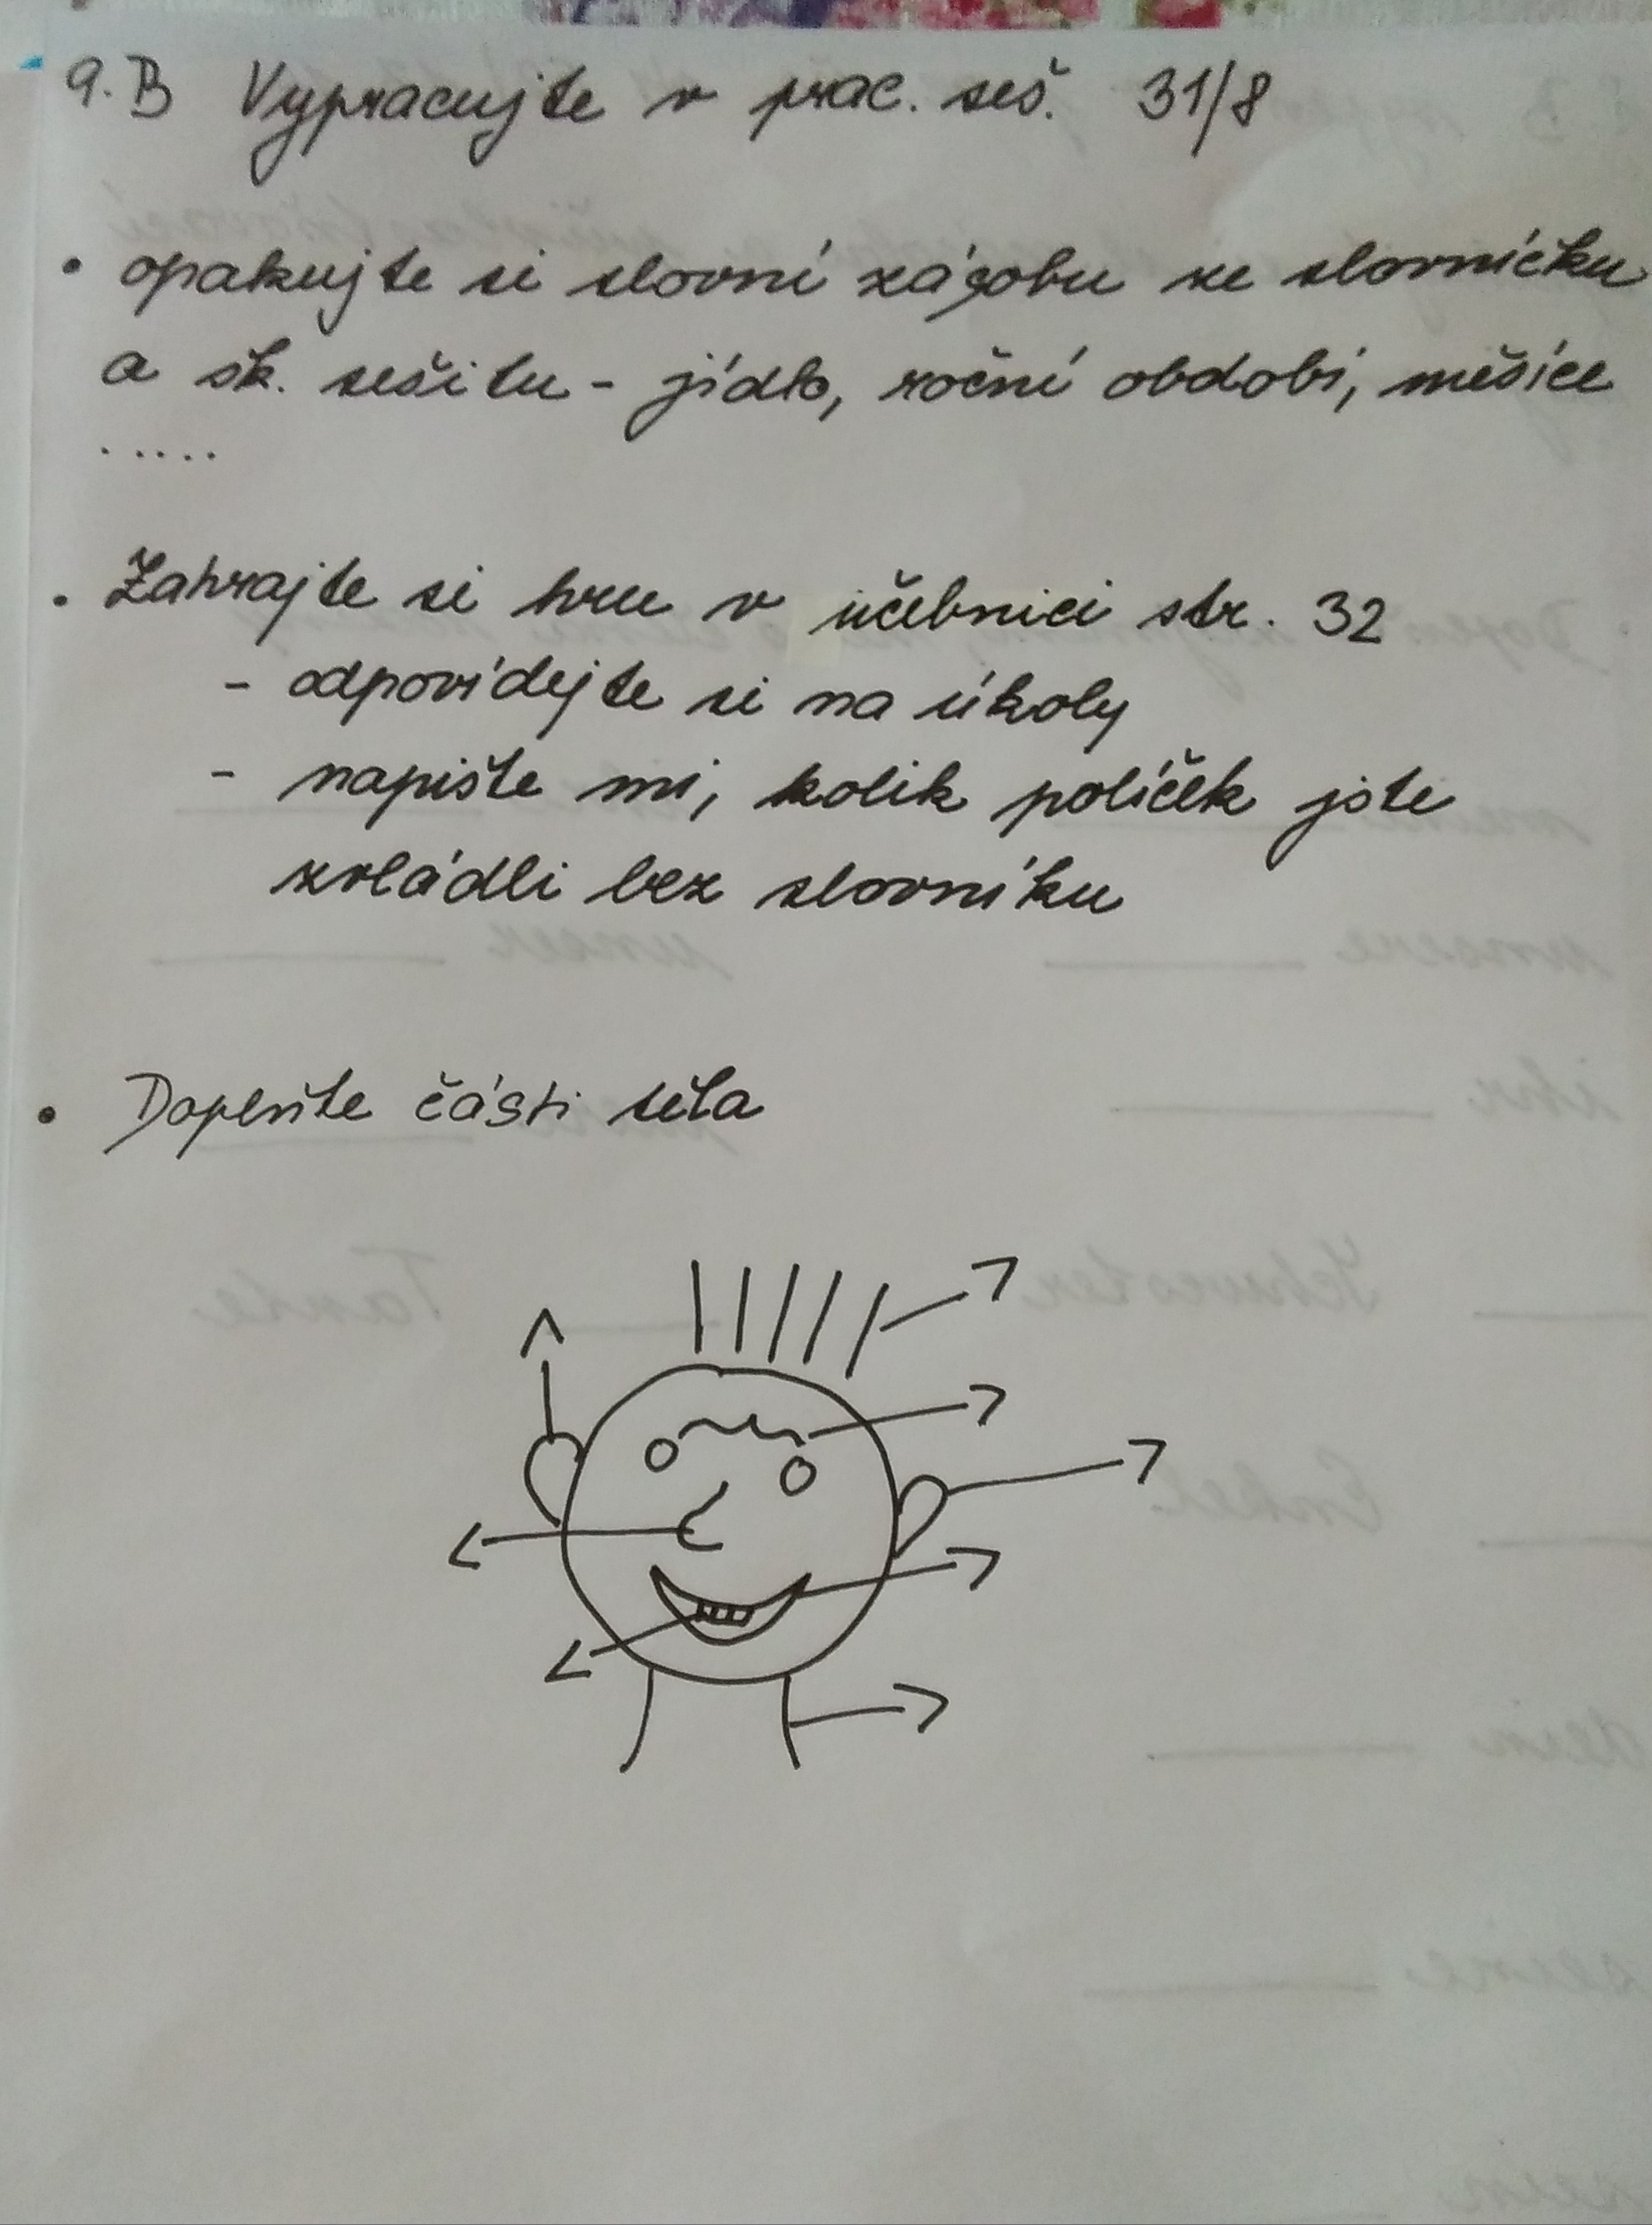 9.B Vypracujte v prac. seš. 31/8
• opakujte si slovní zásobu ze slovníčku
a šk. sešitu - jídlo, roční období, měsíce
.....
• Zahrajte si hru v učebnici str. 32
- odpovídejte si na úkoly
- napište mi, kolik políček jste
zvládli bez slovníku
• Doplňte části těla